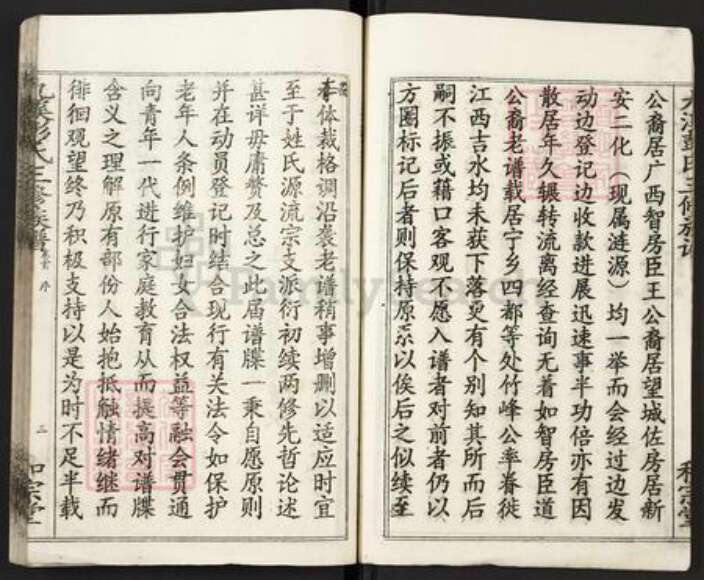 公裔居广西智房臣王公裔居望城佐房居新
安二化（现属涟源）均一举而会经过边发
动边登记边收款进展迅速事半功倍亦有因
散居年久辗转流离经查询无着如智房臣道
公裔老谱载居宁乡四都等处竹峰公率眷徙
江西吉水均未获下落更有个别知其所而后
嗣不振或藉口客观不愿入谱者对前者仍以
方圈标记后者则保持原系以俟后之似续至
本体裁格调沿袭老谱稍事增删以适应时宜
至于姓氏源流宗支派衍初续两修先哲论述
甚详毋庸赘及总之此届谱牒一乘自愿原则
并在动员登记时结合现行有关法令如保护
老年人条例维护妇女合法权益等融会贯通
向青年一代进行家庭教育从而提高对谱牒
含义之理解原有部份人始抱抵触情绪继而
徘徊观望终乃积极支持以是为时不足半载
彭氏三修族谱
序
三
FamilySearch